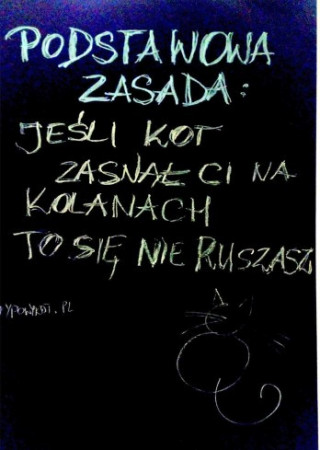 PODSTAWOWA
ZASADA:
JEŚLI KOT
ZASNĄŁ CI NA
KOLANACH
TO SIĘ NIE RUSZASZ